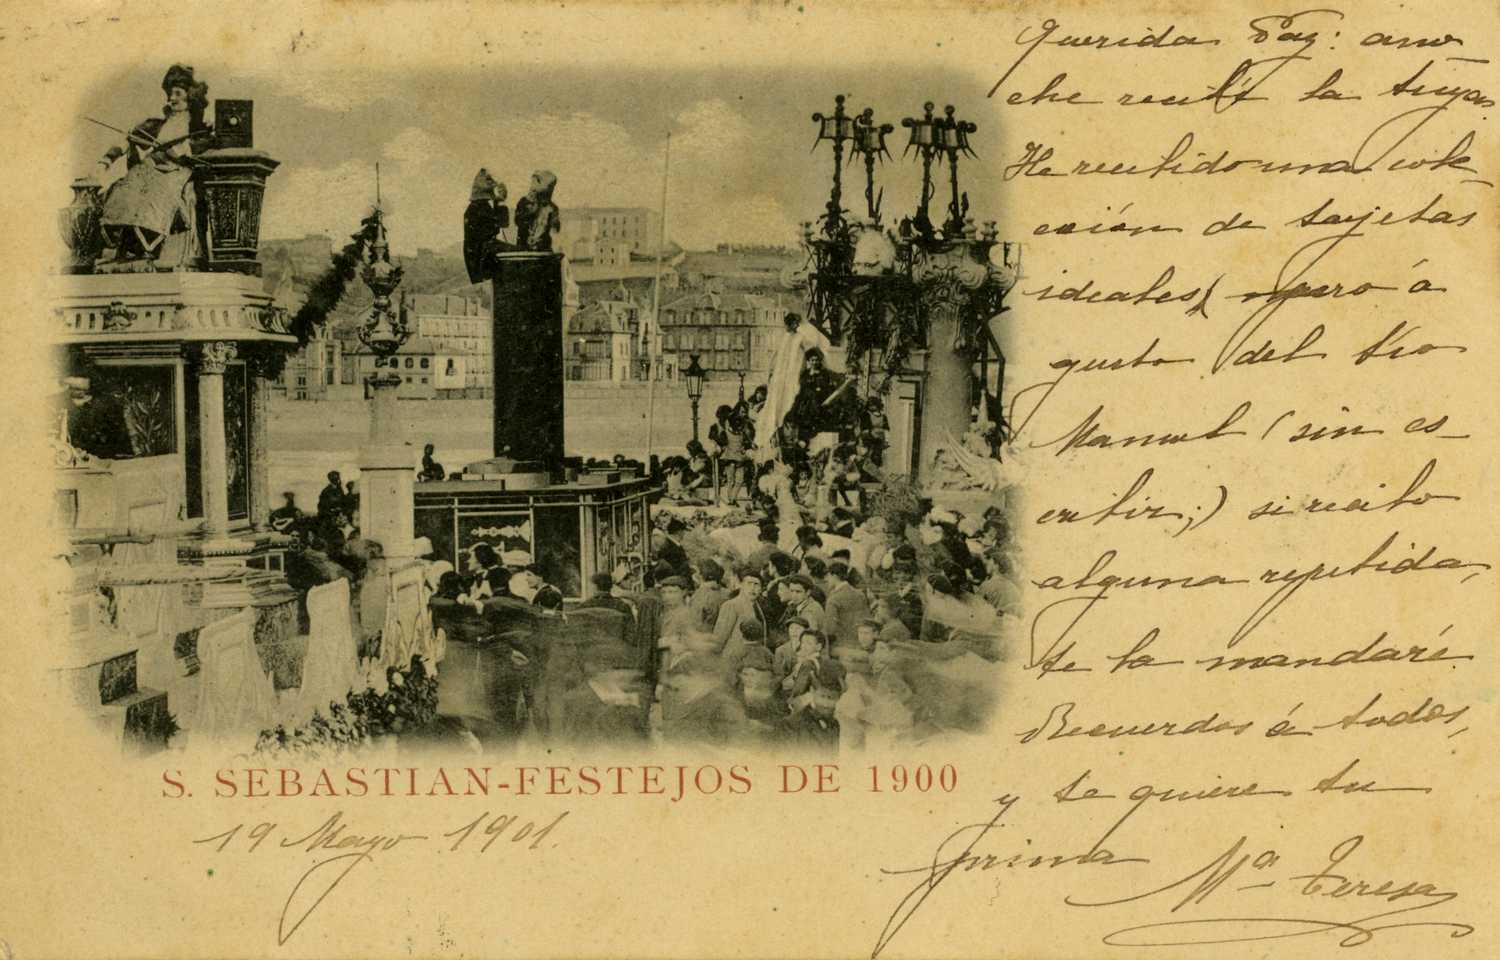 Querida Paz: ano
che recibí la tuya.
He recibido una cole
cción de tarjetas
ideales, pero á
gusto del tío
Manuel (sin es-
cribir;) si recibo
alguna repetida,
te la mandaré.
Recuerdos á todos,
y te quiere tu
prima Mª Teresa
S. SEBASTIAN-FESTEJOS DE 1900
19 Mayo 1901.